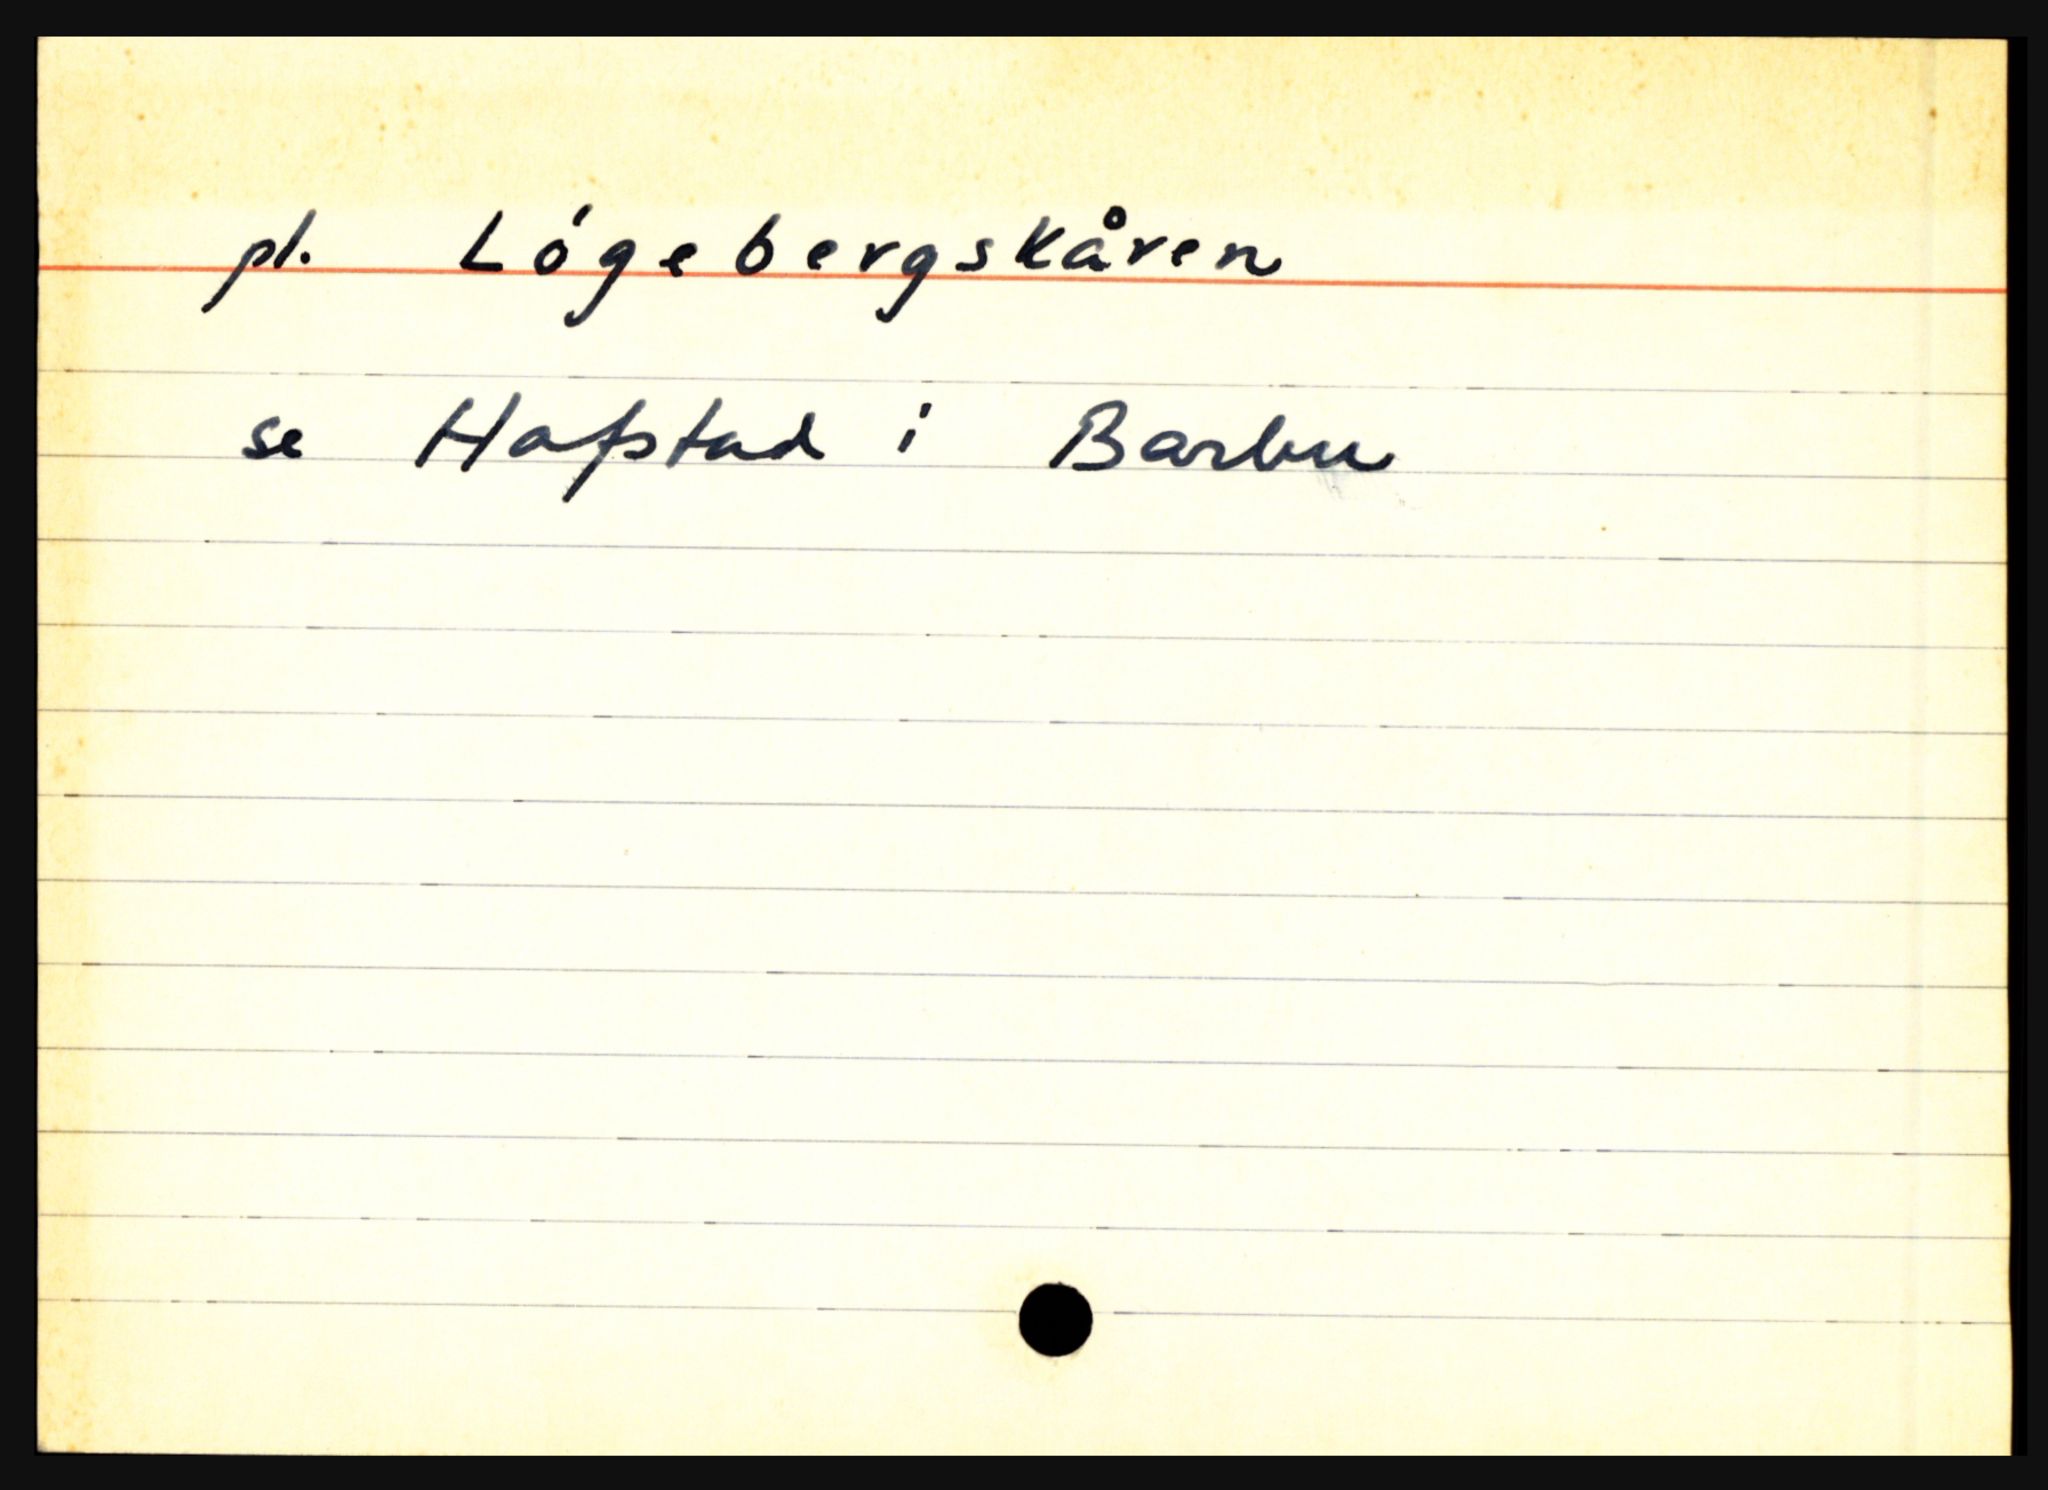 pl. Lógebergskåren
se Hafstad i Barbu